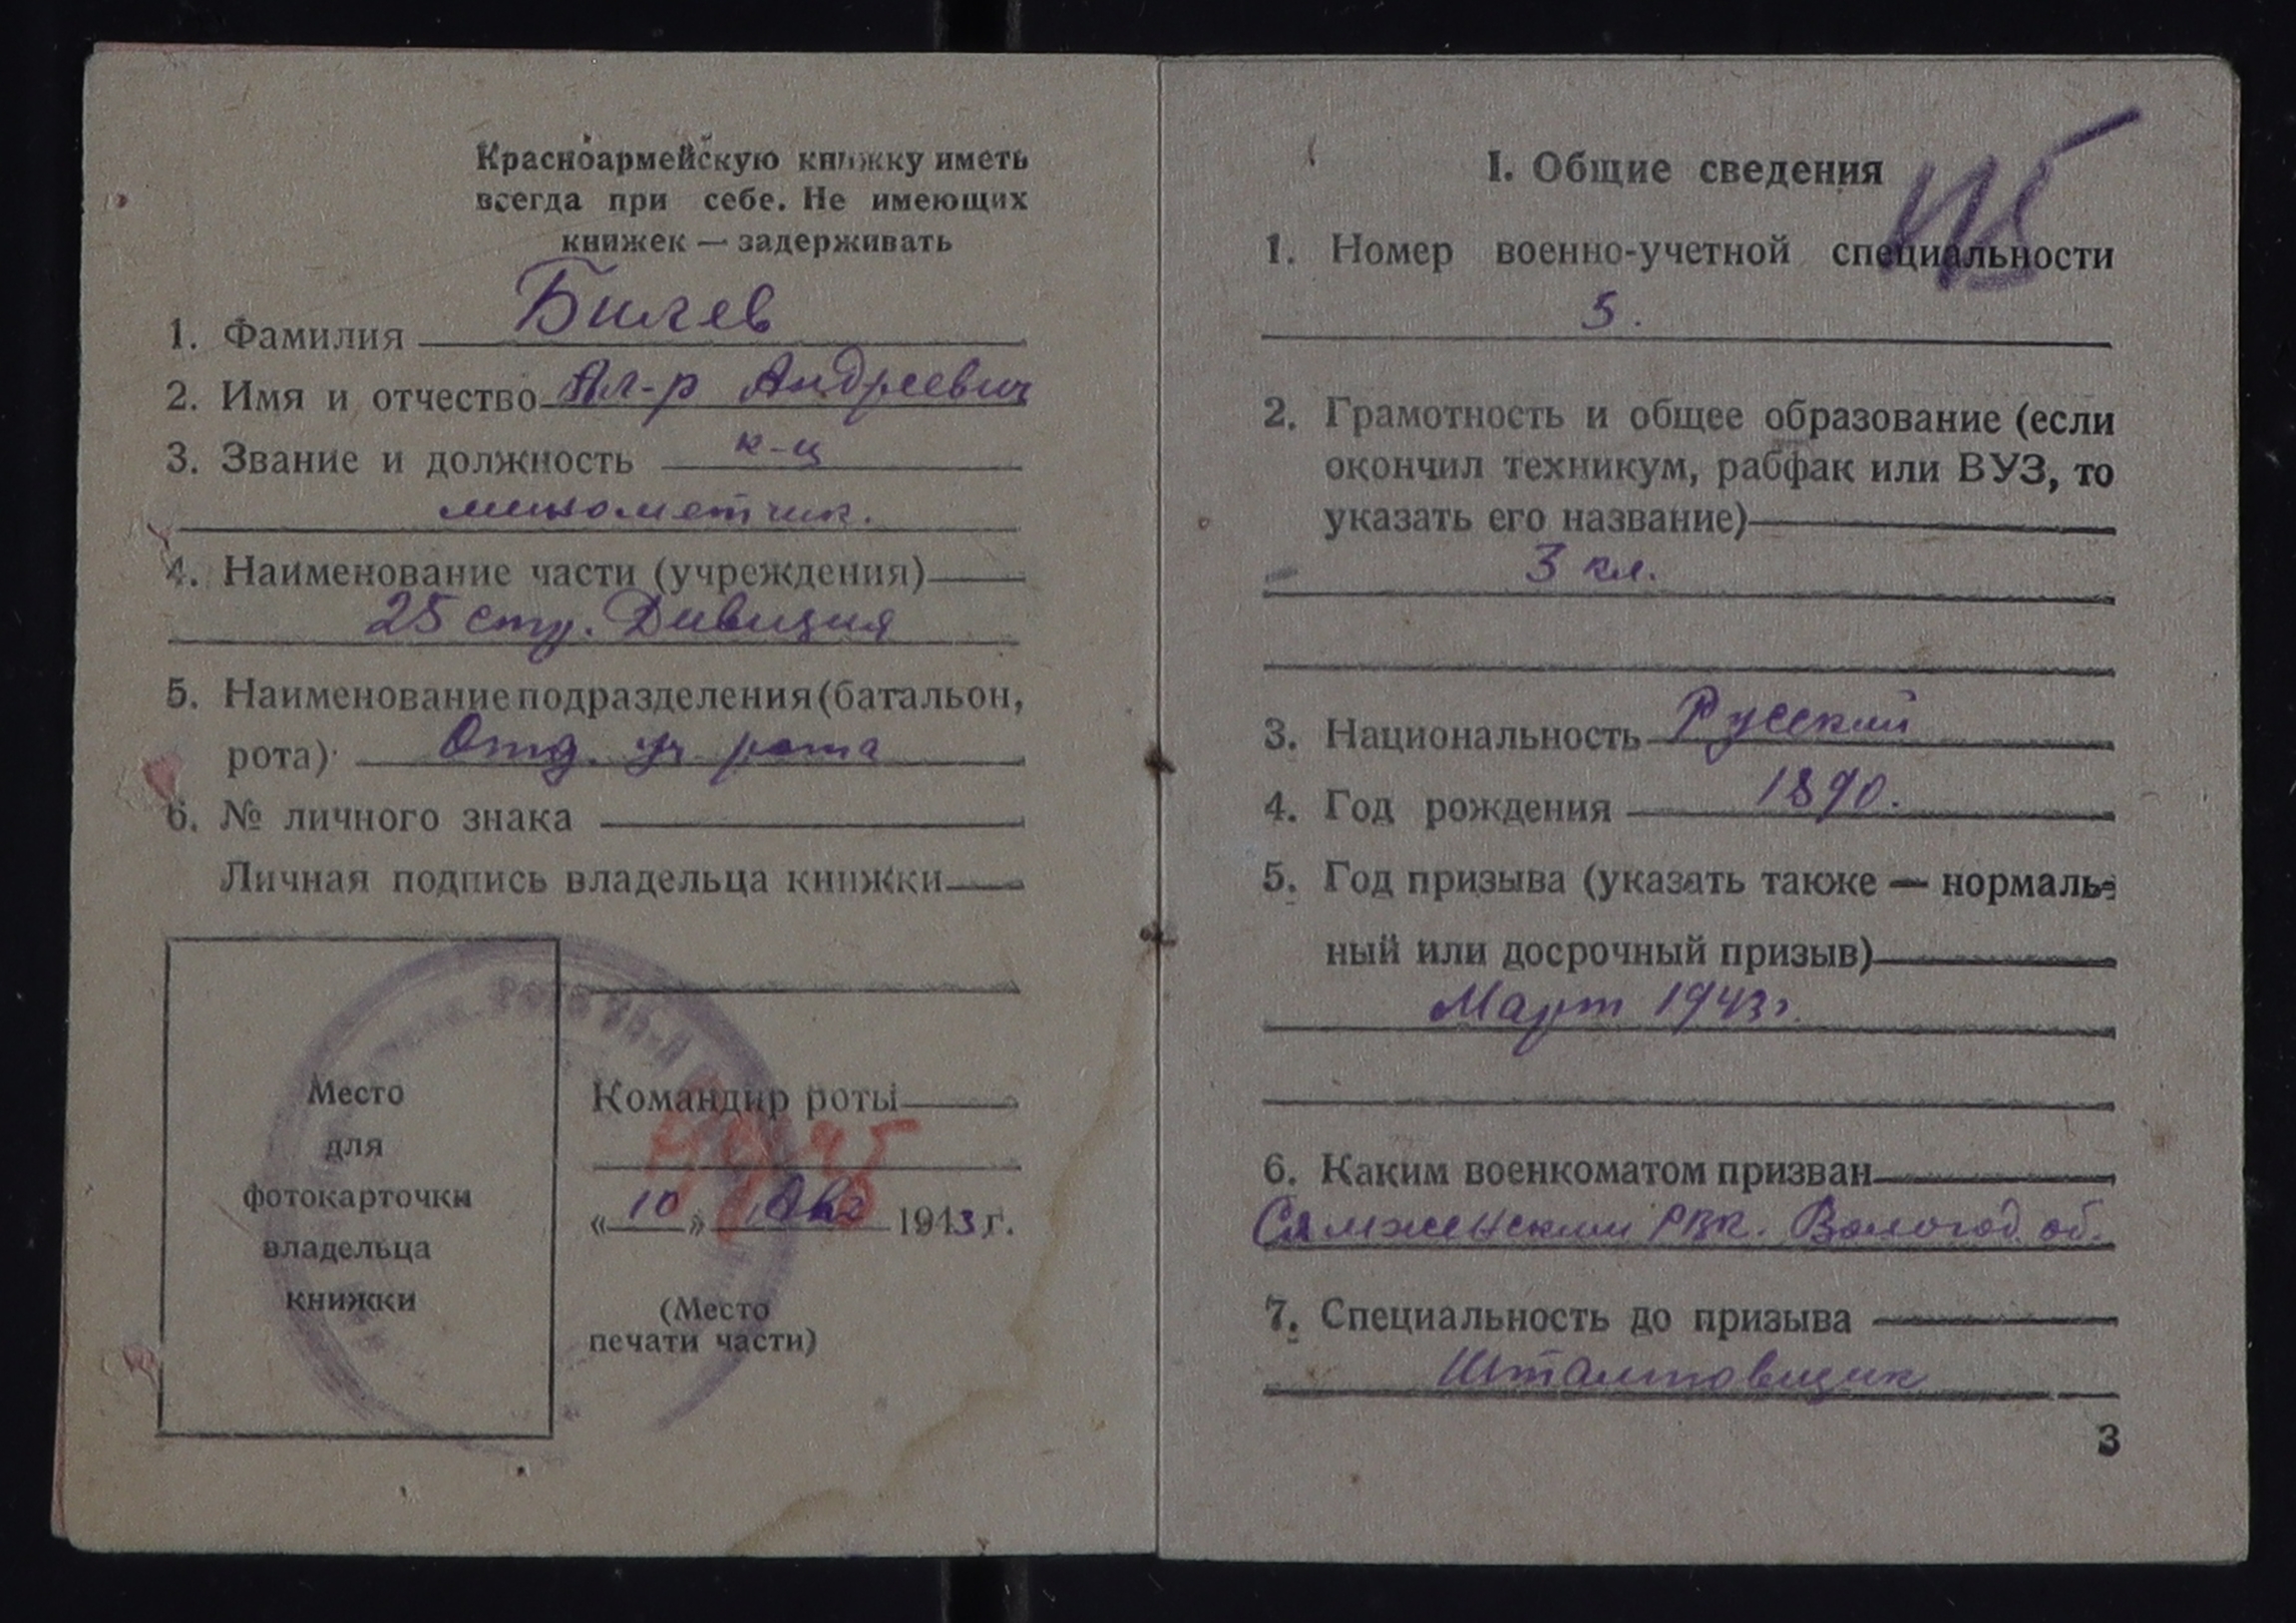 Красноармейскую книжку иметь
всегда при себе. Не имеющих
книжек — задерживать
1. Фамилия Билев
2. Имя и отчество Ал-р Андреевич
3. Звание и должность к-ц
минометчик.
4. Наименование части (учреждения)
25 стр. Дивизия
5. Наименование подразделения (батальон,
рота) Отд. уч. рота
6. № личного знака
Личная подпись владельца книжки
Место
для
фотокарточки
владельца
книжки
Командир роты
«10» Авг 1943 г.
(Место
печати части)
I. Общие сведения
1. Номер военно-учетной специальности
5.
2. Грамотность и общее образование (если
окончил техникум, рабфак или ВУЗ, то
указать его название)
3 кл.
3. Национальность Русский
4. Год рождения 1890.
5. Год призыва (указать также — нормаль-
ный или досрочный призыв)
Март 1943 г.
6. Каким военкоматом призван
Сямженским РВК. Вологод. об.
7. Специальность до призыва
Штамповщик
3